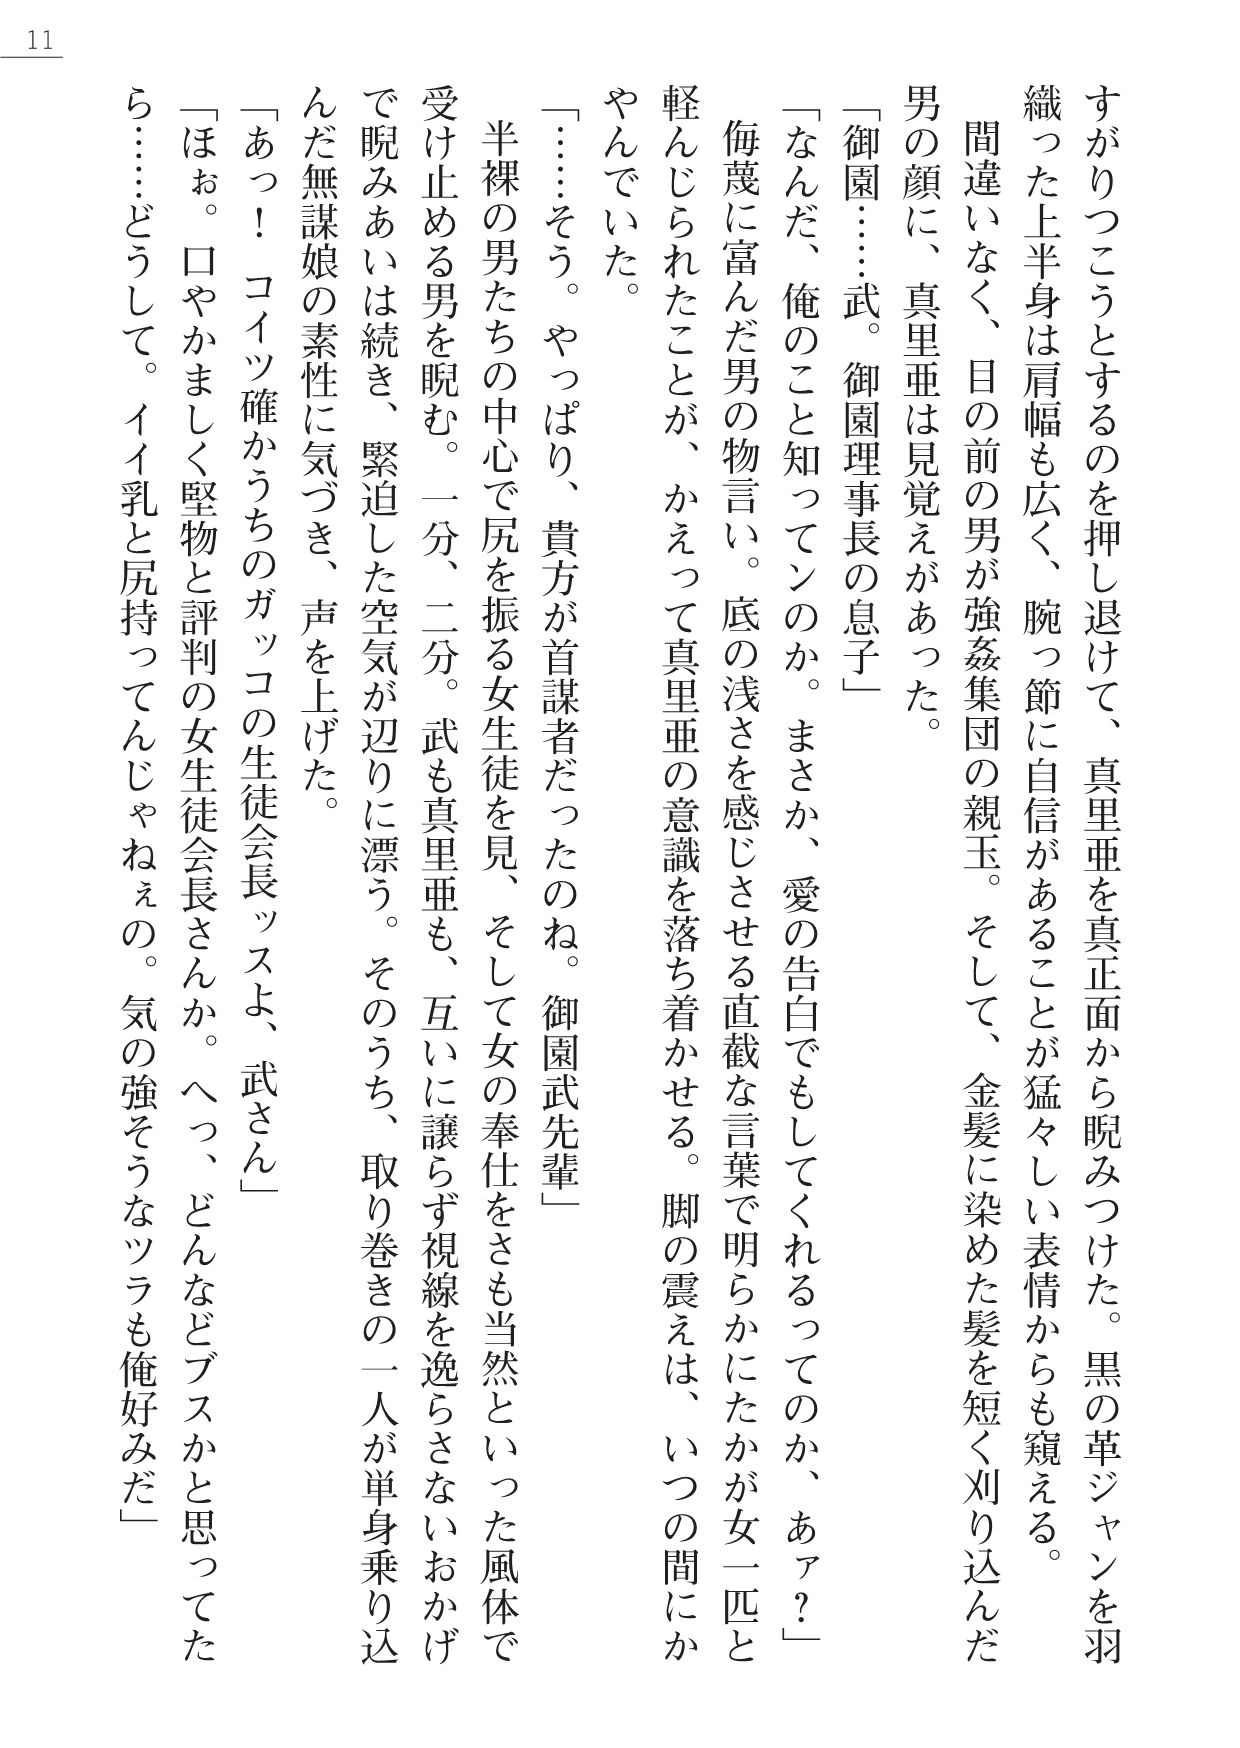 11
すがりつこうとするのを押し退けて、真里亜を真正面から睨みつけた。黒の革ジャンを羽
織った上半身は肩幅も広く、腕っ節に自信があることが猛々しい表情からも窺える。
間違いなく、目の前の男が強姦集団の親玉。そして、金髪に染めた髪を短く刈り込んだ
男の顔に、真里亜は見覚えがあった。
「御園……武。御園理事長の息子」
「なんだ、俺のこと知ってンのか。まさか、愛の告白でもしてくれるってのか、あァ？」
侮蔑に富んだ男の物言い。底の浅さを感じさせる直截な言葉で明らかにたかが女一匹と
軽んじられたことが、かえって真里亜の意識を落ち着かせる。脚の震えは、いつの間にか
やんでいた。
「……そう。やっぱり、貴方が首謀者だったのね。御園武先輩」
半裸の男たちの中心で尻を振る女生徒を見、そして女の奉仕をさも当然といった風体で
受け止める男を睨む。一分、二分。武も真里亜も、互いに譲らず視線を逸らさないおかげ
で睨みあいは続き、緊迫した空気が辺りに漂う。そのうち、取り巻きの一人が単身乗り込
んだ無謀娘の素性に気づき、声を上げた。
「あっ！　コイツ確かうちのガッコの生徒会長ッスよ、武さん」
「ほぉ。口やかましく堅物と評判の女生徒会長さんか。へっ、どんなどブスかと思ってた
ら……どうして。イイ乳と尻持ってんじゃねぇの。気の強そうなツラも俺好みだ」